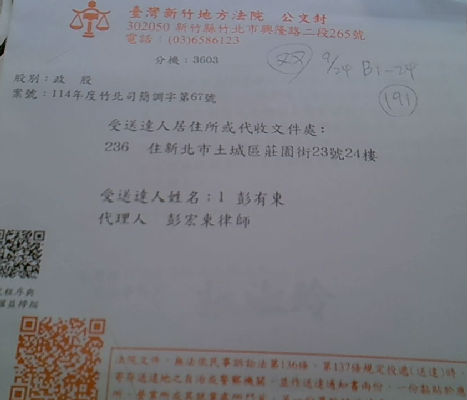 臺灣新竹地方法院 公文封
302050 新竹縣竹北市興隆路二段265號
電話：(03)6586123
分機：3603
9/24 B1-24
191
股別：政 股
案號：114年度竹北司簡調字第67號
受送達人居住所或代收文件處：
236 住新北市土城區莊園街23號24樓
受送達人姓名：1 彭有東
代理人 彭宏東律師
法院文件，無法依民事訴訟法第136條、第137條規定投遞（送達）時，
寄存送達地之自治或警察機關，並作送達通知書兩份，一份黏貼於應